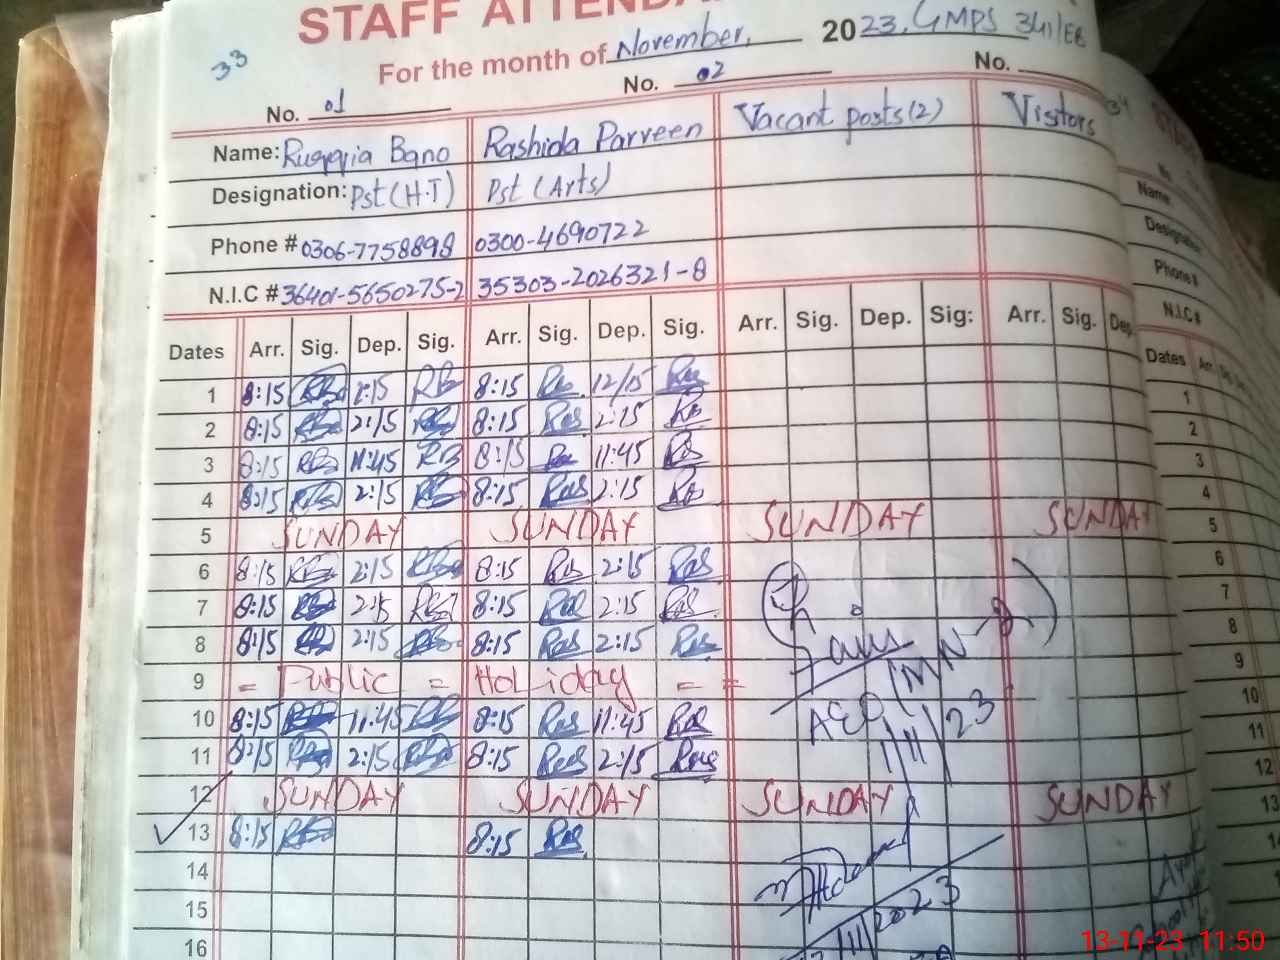 STAFF ATTENDA
33
For the month of November, 2023. GMPS 341/EB
No. 01 No. 02 No.
Name: Ruqqia Bano Rashida Parveen Vacant posts (2) Visitors
Designation: Pst (H.T) Pst (Arts)
Phone # 0306-7758898 0300-4690722
N.I.C # 36401-5650275-2 35303-2026321-8
Dates Arr. Sig. Dep. Sig. Arr. Sig. Dep. Sig. Arr. Sig. Dep. Sig: Arr. Sig. Dep
1 8:15 RB 2:15 RB 8:15 Ras 12/15 Ras
2 8:15 RB 2:15 RB 8:15 Ras 2:15 Ras
3 8:15 RB 11:45 RB 8:15 Ras 11:45 Ras
4 8:15 RB 2:15 RB 8:15 Ras 2:15 Ras
5 SUNDAY SUNDAY SUNDAY SUNDAY
6 8:15 RB 2:15 RB 8:15 Ras 2:15 Ras
7 8:15 RB 2:15 RB 8:15 Ras 2:15 Ras
8 8:15 RB 2:15 RB 8:15 Ras 2:15 Ras
9 = Public = Holiday = =
10 8:15 RB 11:45 RB 8:15 Ras 11:45 Ras
11 8:15 RB 2:15 RB 8:15 Ras 2:15 Ras
12 SUNDAY SUNDAY SUNDAY SUNDAY
13 8:15 RB 8:15 Ras
14
15
16
AEO
1/11/23
/11/2023
34
Name
Designation
Phone #
N.I.C #
Dates Arr
1
2
3
4
5
6
7
8
9
10
11
12
13
13-11-23 11:50